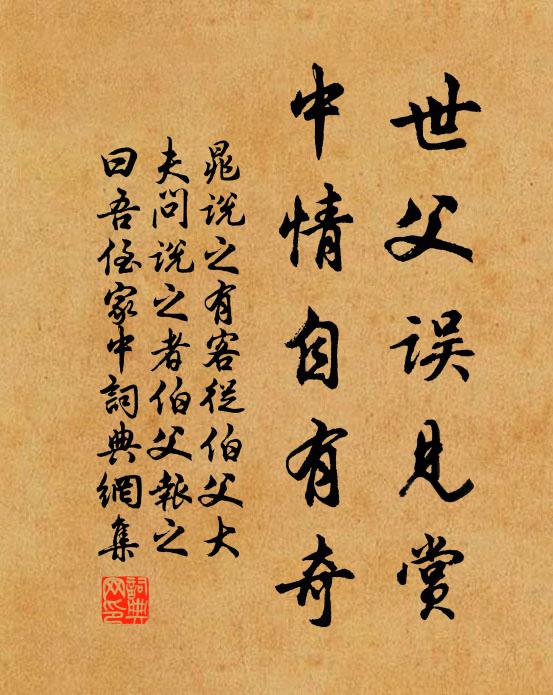 世父误见赏
中情自有奇
晁说之有客從伯父大
夫问说之者伯父報之
曰吾侄家中詞典網集
詞典
网印